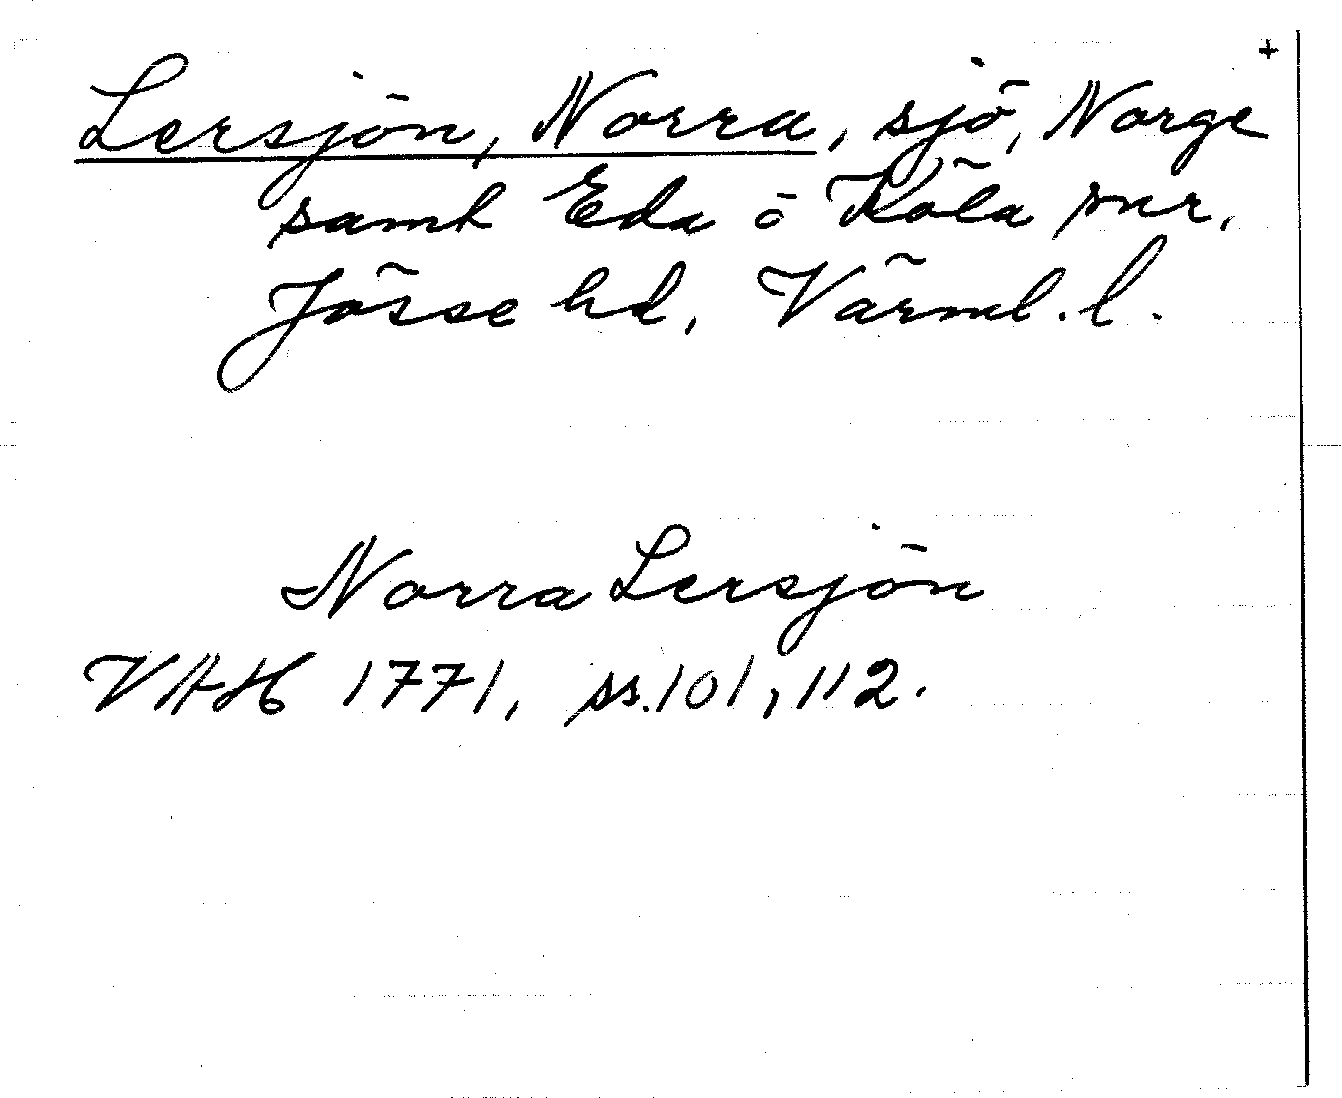 +
Lersjön, Norra, sjö, Norge
samt Eda o Köla snr,
Jösse hd, Värml. l.
Norra Lersjön
VAH 1771, ss. 101, 112.